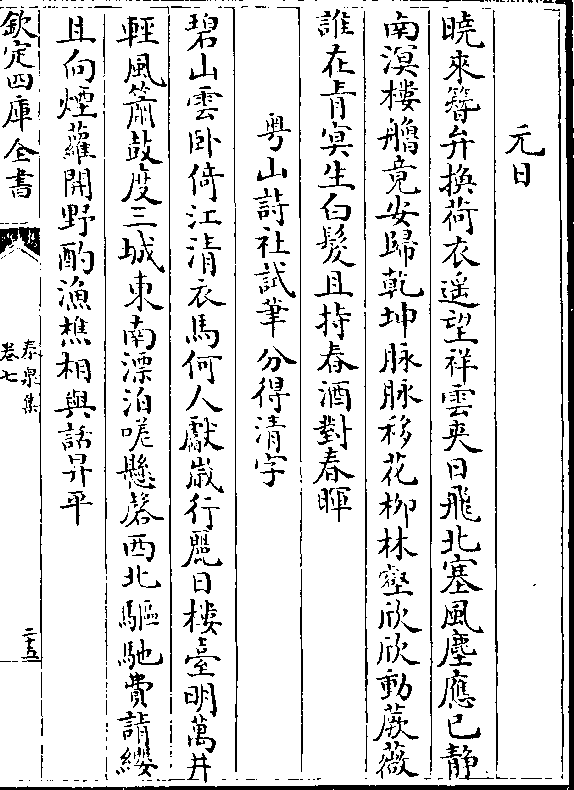 元日
曉來簪弁換荷衣遥望祥雲夾日飛北塞風塵應已静
南溟樓艏竟安歸乾坤脉脉移花柳林壑欣欣動蕨薇
誰在青冥生白髮且持春酒對春暉
粤山詩社試筆分得清字
碧山雲卧倚江清衣馬何人獻歳行麗日樓臺明萬井
輕風簫鼓度三城東南漂泊嗟懸磬西北驅馳費請纓
且向煙蘿開野酌漁樵相與話昇平
欽定四庫全書
泰泉集
卷七
二十五